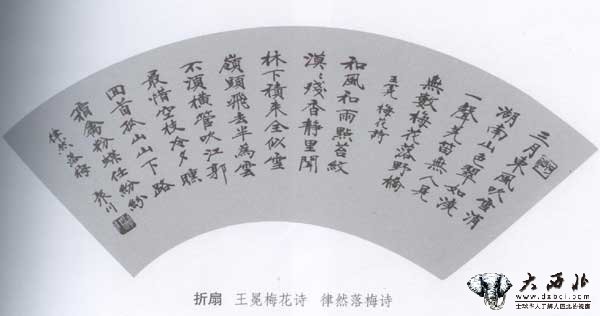 三月東風吹雪消
湖南山色翠如澆
一聲羌笛無人見
無數梅花落野橋
王冕 梅花诗
和風和雨點苔紋
漠漠殘香静里聞
林下積来全似雪
嶺頭飛去半為雲
不須橫管吹江郭
最惜空枝冷夕曛
回首孤山山下路
霜禽粉蝶任紛紛
律然 落梅
折扇 王冕梅花诗 律然落梅诗
大西北
www.dxbei.com